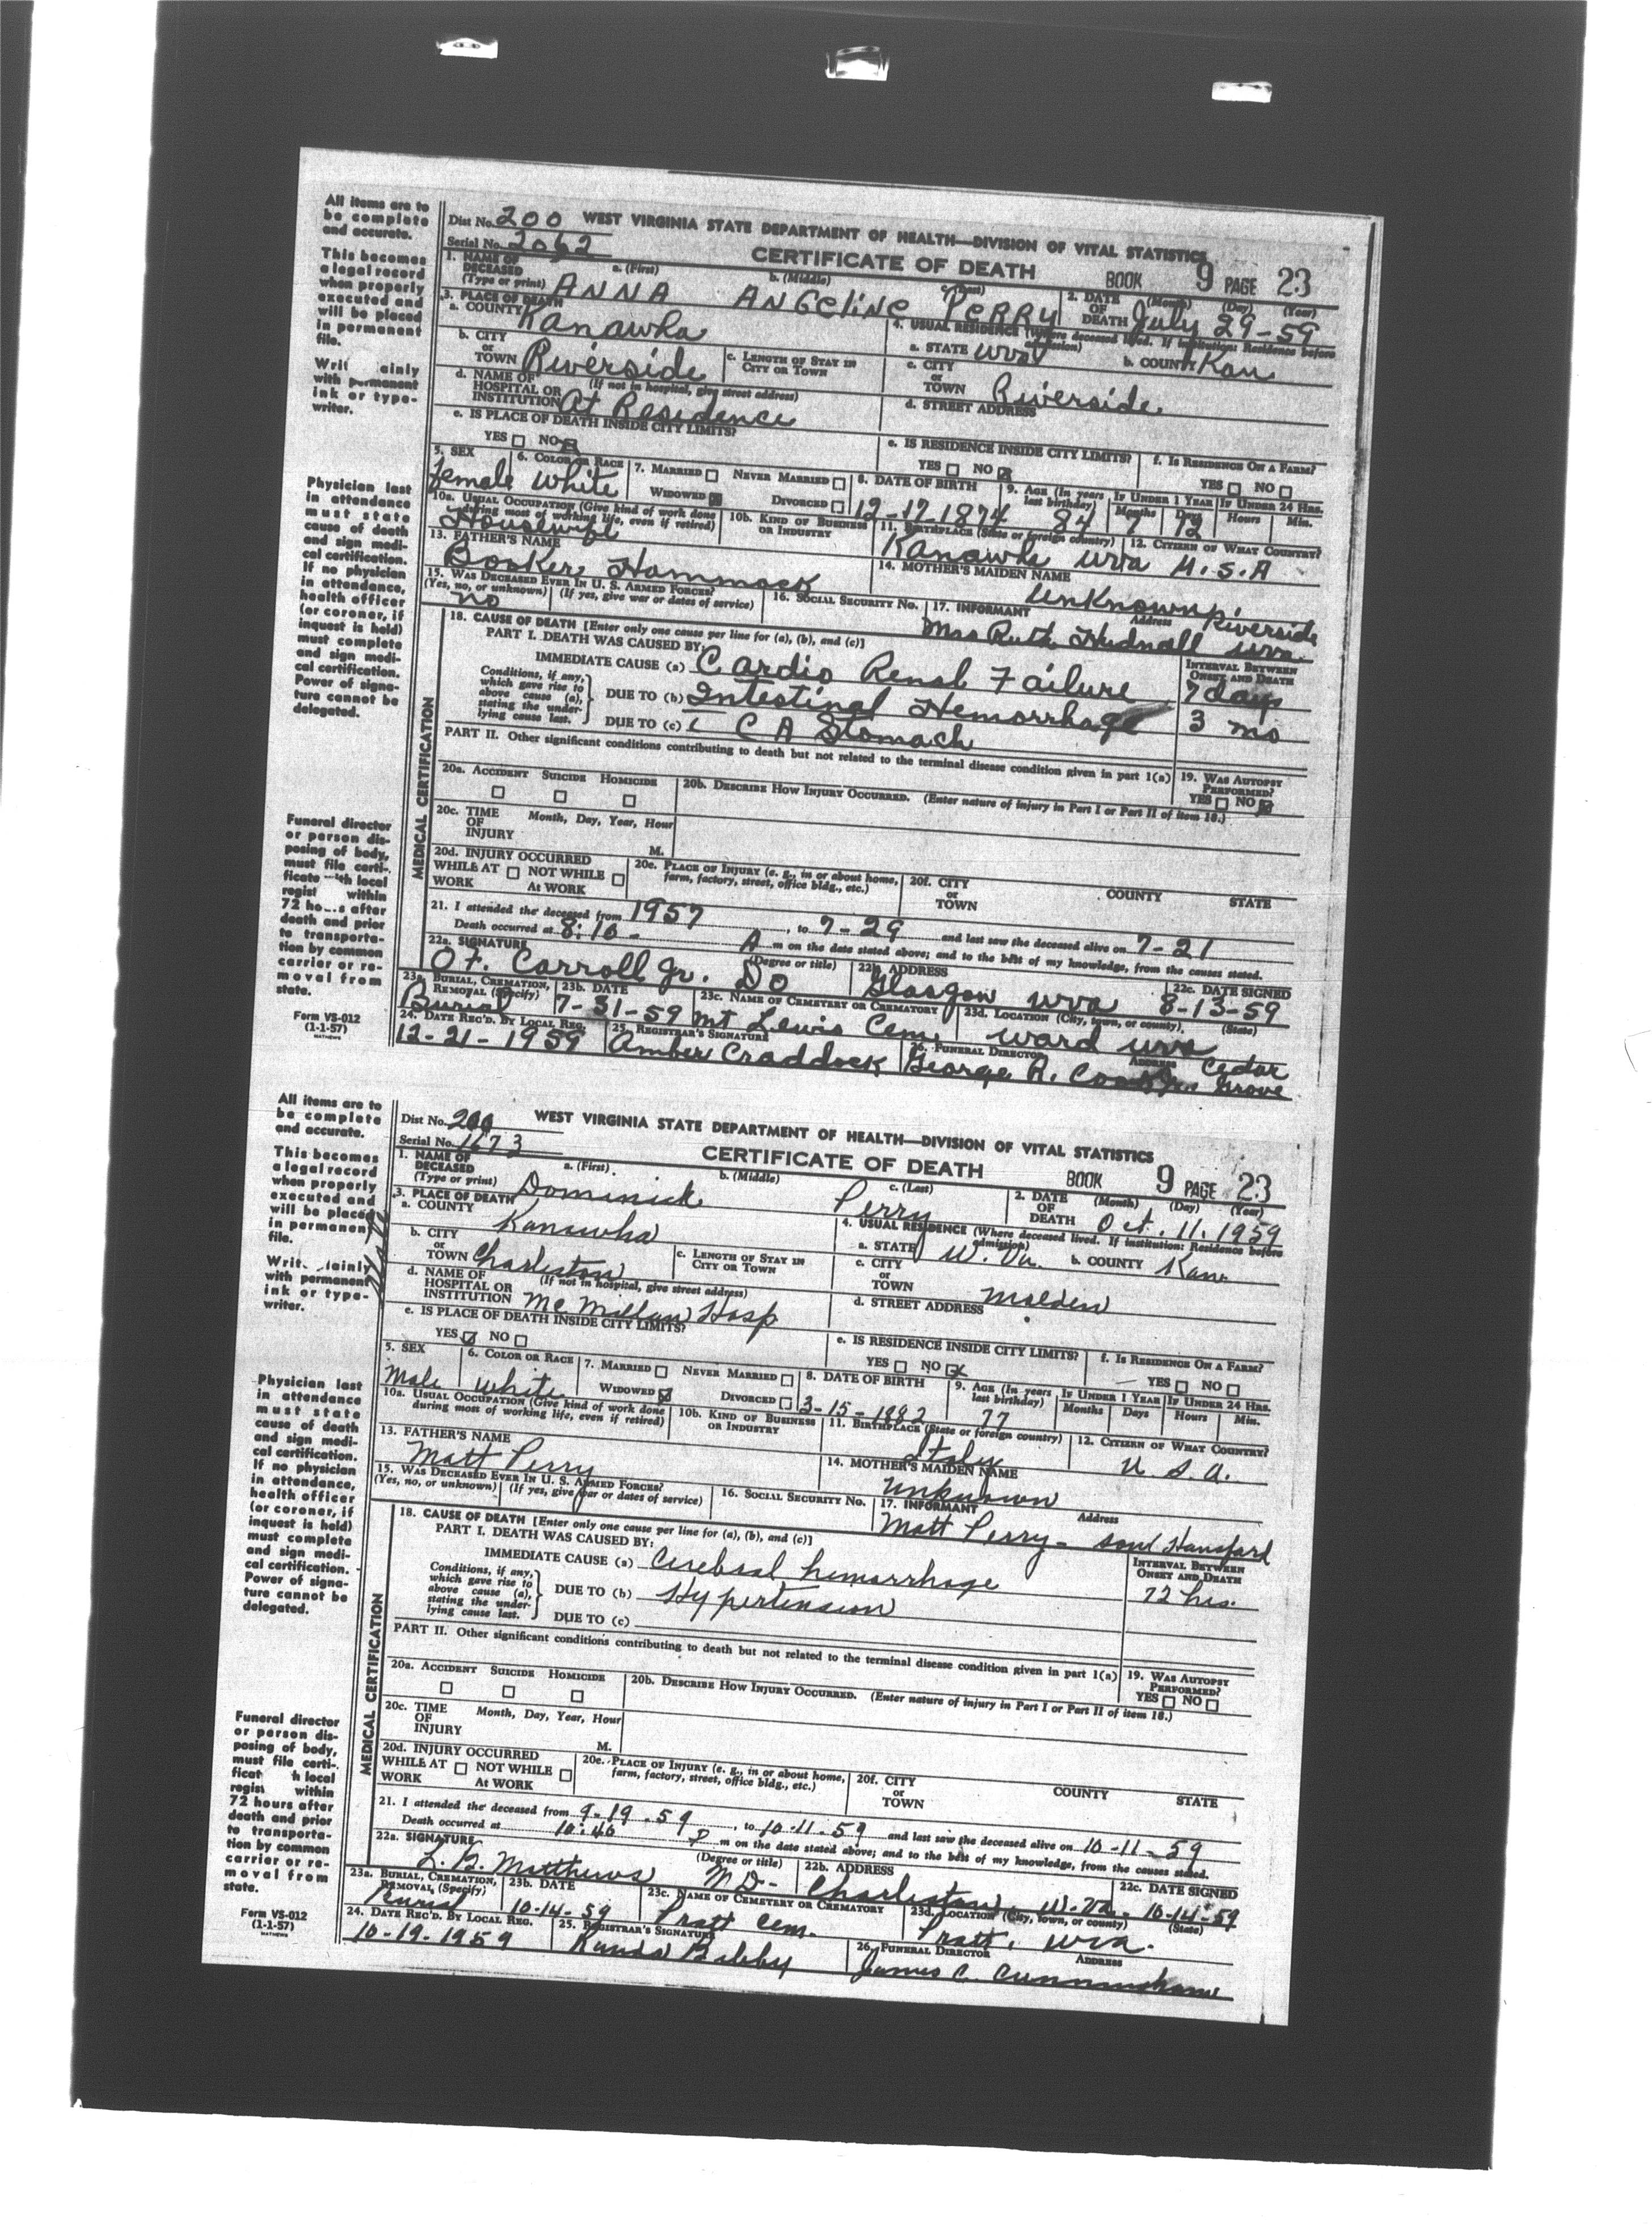 All items are to
be complete
and accurate.
This becomes
a legal record
when properly
executed and
will be placed
in permanent
file.
Writ ainly
with permanent
ink or type-
writer.
Physician last
in attendance
must state
cause of death
and sign medi-
cal certification.
If no physician
in attendance,
health officer
(or coroner, if
inquest is held)
must complete
and sign medi-
cal certification.
Power of signa-
ture cannot be
delegated.
Funeral director
or person dis-
posing of body,
must file certi-
ficate th local
regist within
72 ho s after
death and prior
to transporta-
tion by common
carrier or re-
moval from
state.
Form VS-012
(1-1-57)
MATHEWS
Dist No. 200 WEST VIRGINIA STATE DEPARTMENT OF HEALTH—DIVISION OF VITAL STATISTICS
Serial No. 2062 CERTIFICATE OF DEATH BOOK 9 PAGE 23
1. NAME OF DECEASED (Type or print) a. (First) b. (Middle) c. (Last) ANNA ANGELINE PERRY
2. DATE OF DEATH (Month) (Day) (Year) July 29-59
3. PLACE OF DEATH
a. COUNTY Kanawha
4. USUAL RESIDENCE (Where deceased lived. If institution: Residence before admission)
a. STATE WVa b. COUNTY Kan
b. CITY or TOWN Riverside c. LENGTH OF STAY IN CITY OR TOWN
c. CITY or TOWN Riverside
d. NAME OF HOSPITAL OR INSTITUTION (If not in hospital, give street address) At Residence
d. STREET ADDRESS
e. IS PLACE OF DEATH INSIDE CITY LIMITS? YES NO
e. IS RESIDENCE INSIDE CITY LIMITS? YES NO f. IS RESIDENCE ON A FARM? YES NO
5. SEX female 6. COLOR OR RACE White 7. MARRIED NEVER MARRIED WIDOWED DIVORCED
8. DATE OF BIRTH 12-17-1874 9. AGE (In years last birthday) 84 IF UNDER 1 YEAR Months 7 Days 12 IF UNDER 24 HRS. Hours Min.
10a. USUAL OCCUPATION (Give kind of work done during most of working life, even if retired) Housewife 10b. KIND OF BUSINESS OR INDUSTRY
11. BIRTHPLACE (State or foreign country) Kanawha WVa 12. CITIZEN OF WHAT COUNTRY? U.S.A
13. FATHER'S NAME Booker Hammock 14. MOTHER'S MAIDEN NAME Unknown
15. WAS DECEASED EVER IN U. S. ARMED FORCES? (Yes, no, or unknown) (If yes, give war or dates of service) No 16. SOCIAL SECURITY NO.
17. INFORMANT Address Mrs Ruth Hudnall Riverside WVa
MEDICAL CERTIFICATION
18. CAUSE OF DEATH [Enter only one cause per line for (a), (b), and (c)]
PART I. DEATH WAS CAUSED BY: INTERVAL BETWEEN ONSET AND DEATH
IMMEDIATE CAUSE (a) Cardio Renal Failure 7 days
Conditions, if any, which gave rise to above cause (a), stating the under- lying cause last.
DUE TO (b) Intestinal Hemorrhage 3 mo
DUE TO (c) CA Stomach
PART II. Other significant conditions contributing to death but not related to the terminal disease condition given in part 1(a) 19. WAS AUTOPSY PERFORMED? YES NO
20a. ACCIDENT SUICIDE HOMICIDE 20b. DESCRIBE HOW INJURY OCCURRED. (Enter nature of injury in Part I or Part II of item 18.)
20c. TIME OF INJURY Month, Day, Year, Hour M.
20d. INJURY OCCURRED WHILE AT WORK NOT WHILE AT WORK 20e. PLACE OF INJURY (e. g., in or about home, farm, factory, street, office bldg., etc.) 20f. CITY or TOWN COUNTY STATE
21. I attended the deceased from 1957, to 7-29 and last saw the deceased alive on 7-21
Death occurred at 8:10 A m on the date stated above; and to the best of my knowledge, from the causes stated.
22a. SIGNATURE (Degree or title) O.F. Carroll Jr. DO 22b. ADDRESS Glasgow WVa 22c. DATE SIGNED 8-13-59
23a. BURIAL, CREMATION, REMOVAL (Specify) Burial 23b. DATE 7-31-59 23c. NAME OF CEMETERY OR CREMATORY Mt Lewis Cem. 23d. LOCATION (City, town, or county) (State) Ward WVa
24. DATE REC'D. BY LOCAL REG. 12-21-1959 25. REGISTRAR'S SIGNATURE Amber Craddock 26. FUNERAL DIRECTOR ADDRESS George R. Cedar Grove
All items are to
be complete
and accurate.
This becomes
a legal record
when properly
executed and
will be placed
in permanent
file.
Writ lainly
with permanent
ink or type-
writer.
Physician last
in attendance
must state
cause of death
and sign medi-
cal certification.
If no physician
in attendance,
health officer
(or coroner, if
inquest is held)
must complete
and sign medi-
cal certification.
Power of signa-
ture cannot be
delegated.
Funeral director
or person dis-
posing of body,
must file certi-
ficat h local
regist within
72 hours after
death and prior
to transporta-
tion by common
carrier or re-
moval from
state.
Form VS-012
(1-1-57)
MATHEWS
Dist No. 200 WEST VIRGINIA STATE DEPARTMENT OF HEALTH—DIVISION OF VITAL STATISTICS
Serial No. 1673 CERTIFICATE OF DEATH BOOK 9 PAGE 23
1. NAME OF DECEASED (Type or print) a. (First) b. (Middle) c. (Last) Dominick Perry
2. DATE OF DEATH (Month) (Day) (Year) Oct. 11. 1959
3. PLACE OF DEATH
a. COUNTY Kanawha
4. USUAL RESIDENCE (Where deceased lived. If institution: Residence before admission)
a. STATE W. Va. b. COUNTY Kan.
b. CITY or TOWN Charleston c. LENGTH OF STAY IN CITY OR TOWN
c. CITY or TOWN Malden
d. NAME OF HOSPITAL OR INSTITUTION (If not in hospital, give street address) McMillan Hosp
d. STREET ADDRESS
e. IS PLACE OF DEATH INSIDE CITY LIMITS? YES NO
e. IS RESIDENCE INSIDE CITY LIMITS? YES NO f. IS RESIDENCE ON A FARM? YES NO
5. SEX Male 6. COLOR OR RACE white 7. MARRIED NEVER MARRIED WIDOWED DIVORCED
8. DATE OF BIRTH 3-15-1882 9. AGE (In years last birthday) 77 IF UNDER 1 YEAR Months Days IF UNDER 24 HRS. Hours Min.
10a. USUAL OCCUPATION (Give kind of work done during most of working life, even if retired) 10b. KIND OF BUSINESS OR INDUSTRY
11. BIRTHPLACE (State or foreign country) Italy 12. CITIZEN OF WHAT COUNTRY? U.S.A.
13. FATHER'S NAME Matt Perry 14. MOTHER'S MAIDEN NAME Unknown
15. WAS DECEASED EVER IN U. S. ARMED FORCES? (Yes, no, or unknown) (If yes, give war or dates of service) 16. SOCIAL SECURITY NO.
17. INFORMANT Address Matt Perry - son Hansford
MEDICAL CERTIFICATION
18. CAUSE OF DEATH [Enter only one cause per line for (a), (b), and (c)]
PART I. DEATH WAS CAUSED BY: INTERVAL BETWEEN ONSET AND DEATH
IMMEDIATE CAUSE (a) Cerebral hemorrhage 72 hrs.
Conditions, if any, which gave rise to above cause (a), stating the under- lying cause last.
DUE TO (b) Hypertension
DUE TO (c)
PART II. Other significant conditions contributing to death but not related to the terminal disease condition given in part 1(a) 19. WAS AUTOPSY PERFORMED? YES NO
20a. ACCIDENT SUICIDE HOMICIDE 20b. DESCRIBE HOW INJURY OCCURRED. (Enter nature of injury in Part I or Part II of item 18.)
20c. TIME OF INJURY Month, Day, Year, Hour M.
20d. INJURY OCCURRED WHILE AT WORK NOT WHILE AT WORK 20e. PLACE OF INJURY (e. g., in or about home, farm, factory, street, office bldg., etc.) 20f. CITY or TOWN COUNTY STATE
21. I attended the deceased from 9-19-59, to 10-11-59 and last saw the deceased alive on 10-11-59
Death occurred at 10:40 P m on the date stated above; and to the best of my knowledge, from the causes stated.
22a. SIGNATURE (Degree or title) L. B. Matthews MD- 22b. ADDRESS Charleston, W. Va. 22c. DATE SIGNED 10-14-59
23a. BURIAL, CREMATION, REMOVAL (Specify) Burial 23b. DATE 10-14-59 23c. NAME OF CEMETERY OR CREMATORY Pratt Cem. 23d. LOCATION (City, town, or county) (State) Pratt, WVa.
24. DATE REC'D. BY LOCAL REG. 10-19-1959 25. REGISTRAR'S SIGNATURE Bibby 26. FUNERAL DIRECTOR ADDRESS James C. Cunningham